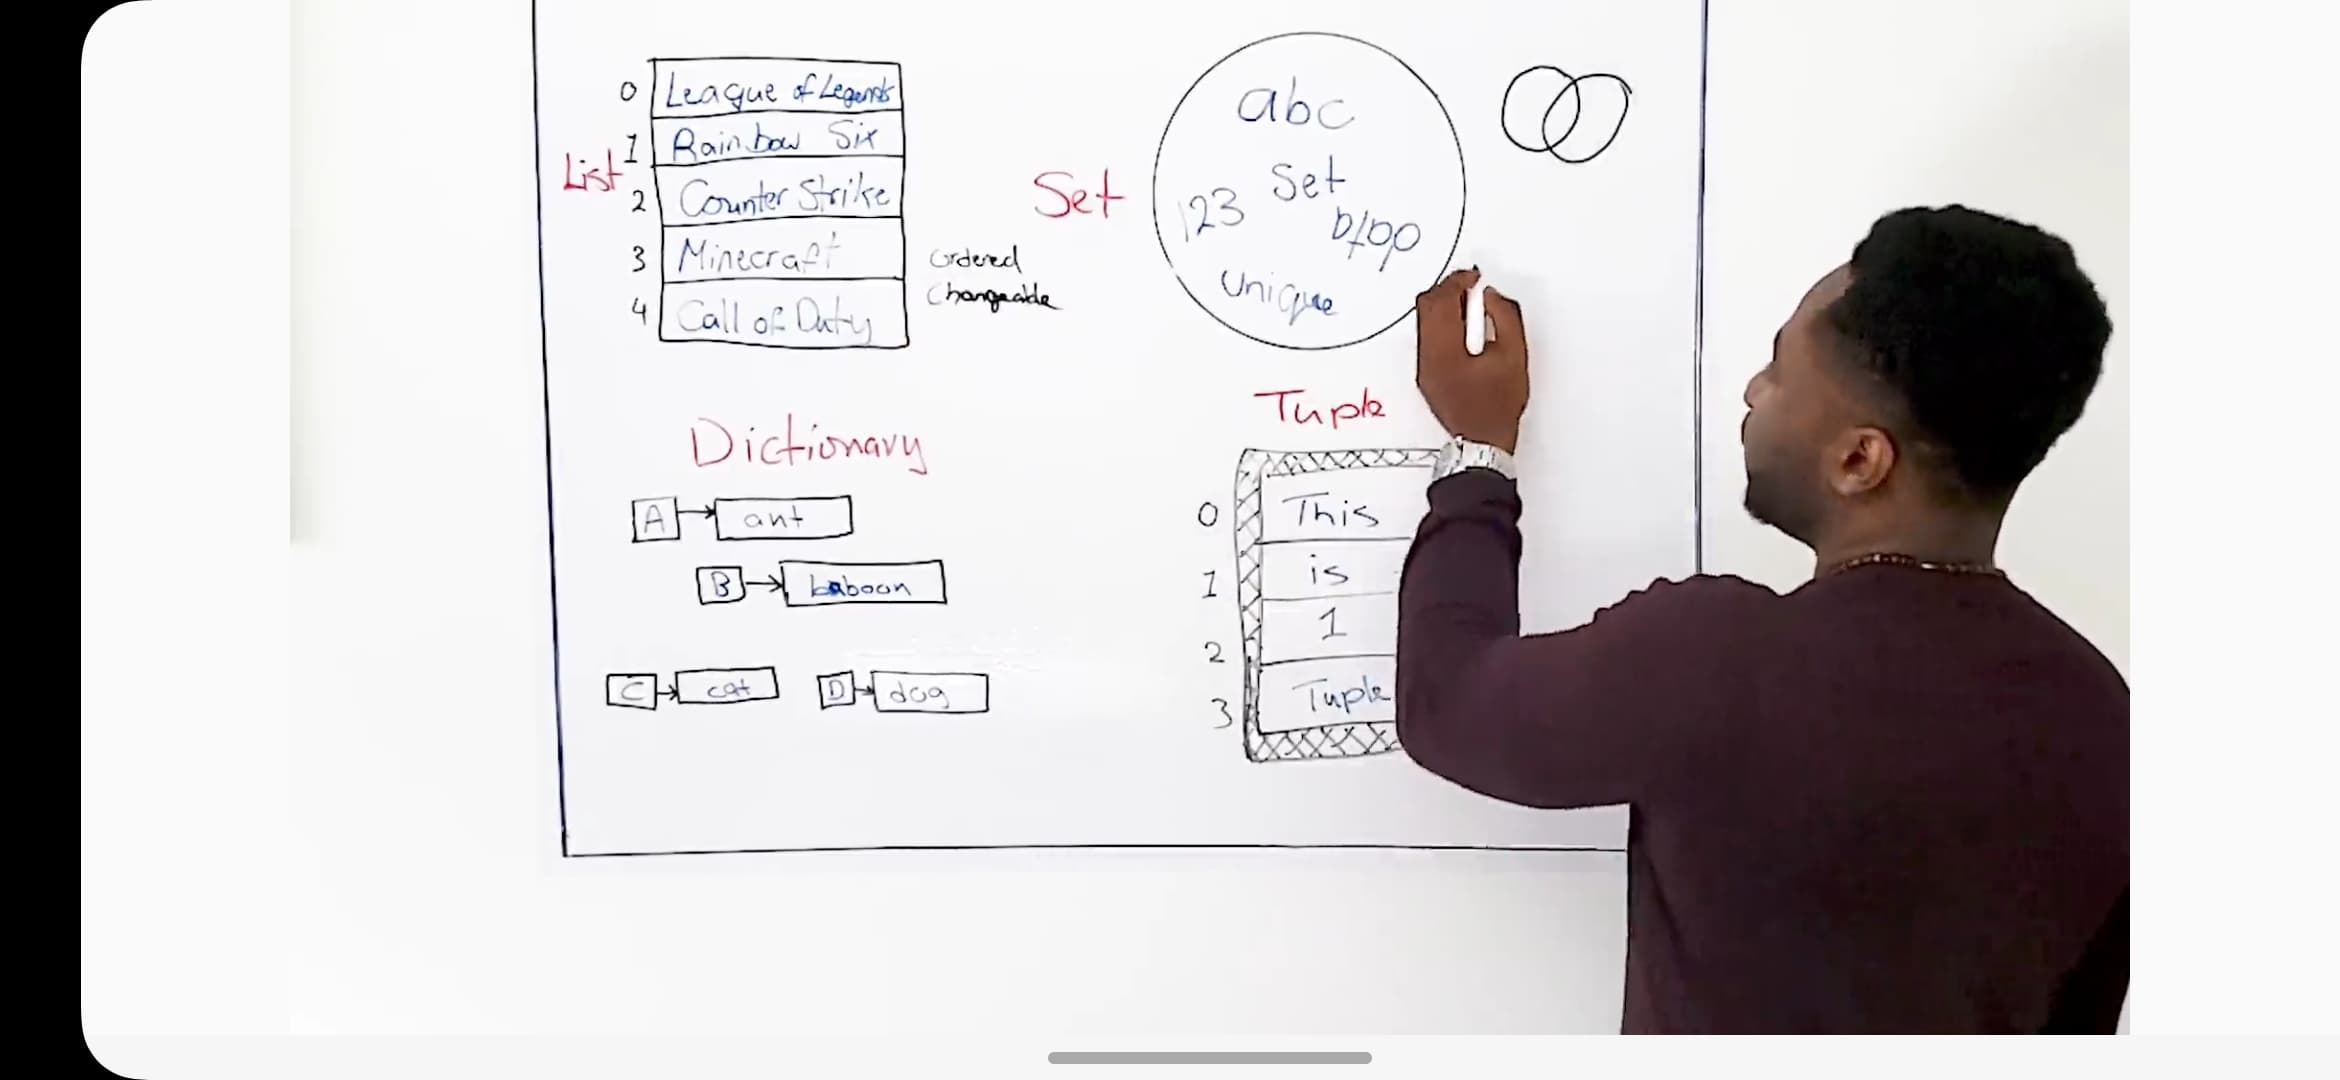 List
0 League of Legends
1 Rainbow Six
2 Counter Strike
3 Minecraft
4 Call of Duty
Ordered
Changeable
Set
abc
Set
123
Unique
Dictionary
A ant
B baboon
C cat
D dog
Tuple
0 This
1 is
2 1
3 Tuple